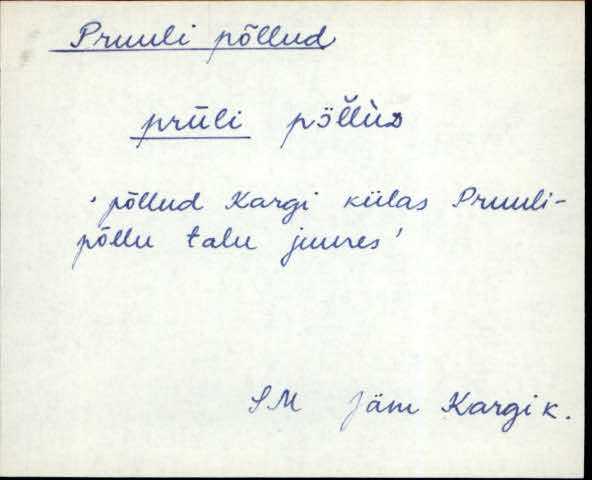 Pruuli põllud
prūli pö̆l̆lùᴅ
'põllud Kargi külas Pruuli-
põllu talu juures'
SM Jäm Kargi k.